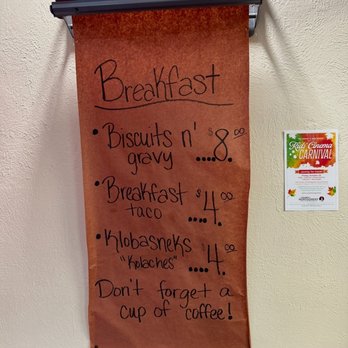 Breakfast
• Biscuits n' $8.00
gravy ....
• Breakfast $4.00
taco ....
• Klobasneks $4.00
"Kolaches" ....
Don't forget a
cup of coffee!
Kids Cinema
CARNIVAL